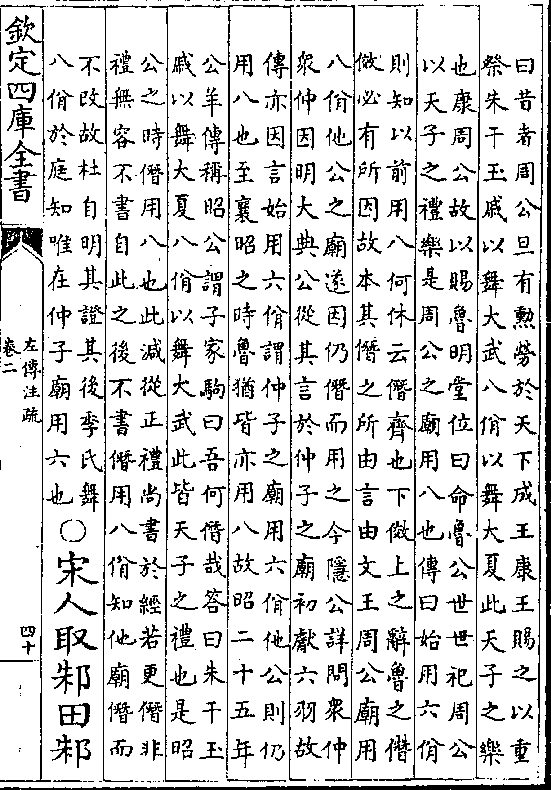 曰昔者周公旦有勲勞於天下成王康王賜之以重
祭朱干玉戚以舞大武八佾以舞大夏此天子之樂
也康周公故以賜魯明堂位曰命魯公世世祀周公
以天子之禮樂是周公之廟用八也傳曰始用六佾
則知以前用八何休云僭齊也下傚上之辭魯之僭
傚必有所因故本其僭之所由言由文王周公廟用
八佾他公之廟遂因仍僭而用之今隱公詳問衆仲
衆仲因明大典公從其言於仲子之廟初獻六羽故
傳亦因言始用六佾謂仲子之廟用六佾他公則仍
用八也至襄昭之時魯猶皆亦用八故昭二十五年
公羊傳稱昭公謂子家駒曰吾何僭哉答曰朱干玉
戚以舞大夏八佾以舞大武此皆天子之禮也是昭
公之時僭用八也此減從正禮尚書於經若更僭非
禮無容不書自此之後不書僭用八佾知他廟僭而
不改故杜自明其證其後季氏舞
八佾於庭知唯在仲子廟用六也
○宋人取邾田邾
欽定四庫全書
左傳注疏
卷二
四十